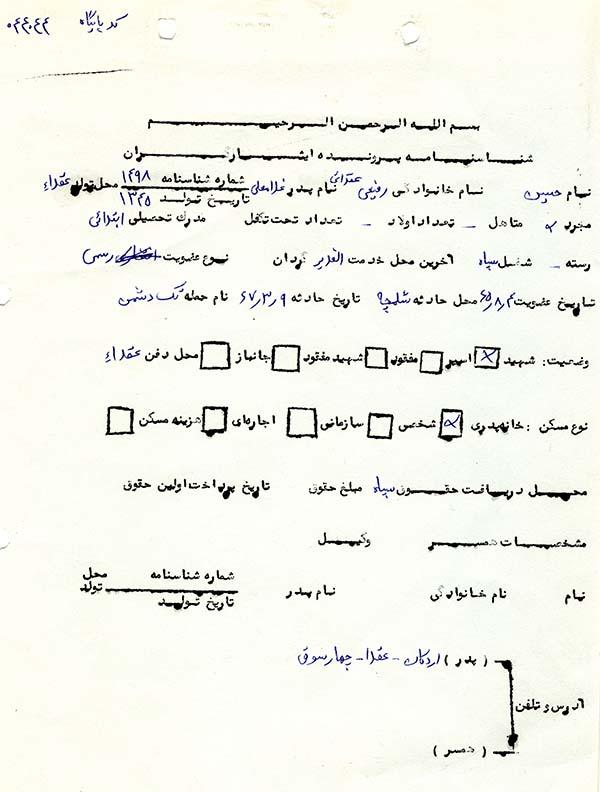 کد پایگاه ۰۴۴۰۴۴
بسم الله الرحمن الرحیم
شناسنامه پرونده ایثارگران
نام حسین نام خانوادگی رفیعی عقدائی نام پدر غلامعلی شماره شناسنامه ۱۴۹۸ محل تولد عقداء
تاریخ تولد ۱۳۴۵
مجرد × متاهل _ تعداد اولاد _ تعداد تحت تکفل مدرک تحصیلی ابتدائی
رسته _ شغل سپاه آخرین محل خدمت الغدیر گردان نوع عضویت رسمی
تاریخ عضویت ۶۵/۸/۴ محل حادثه شلمچه تاریخ حادثه ۶۷/۳/۹ نام حمله تک دشمن
وضعیت: شهید × اسیر مفقود شهید مفقود جانباز محل دفن عقداء
نوع مسکن: خانه پدری × شخصی سازمانی اجاره‌ای هزینه مسکن
محل دریافت حقوق سپاه مبلغ حقوق تاریخ پرداخت اولین حقوق
مشخصات همسر وکیل
نام نام خانوادگی نام پدر شماره شناسنامه محل تولد
تاریخ تولد
(پدر) اردکان - عقدا - چهارسوق
آدرس و تلفن
(همسر)